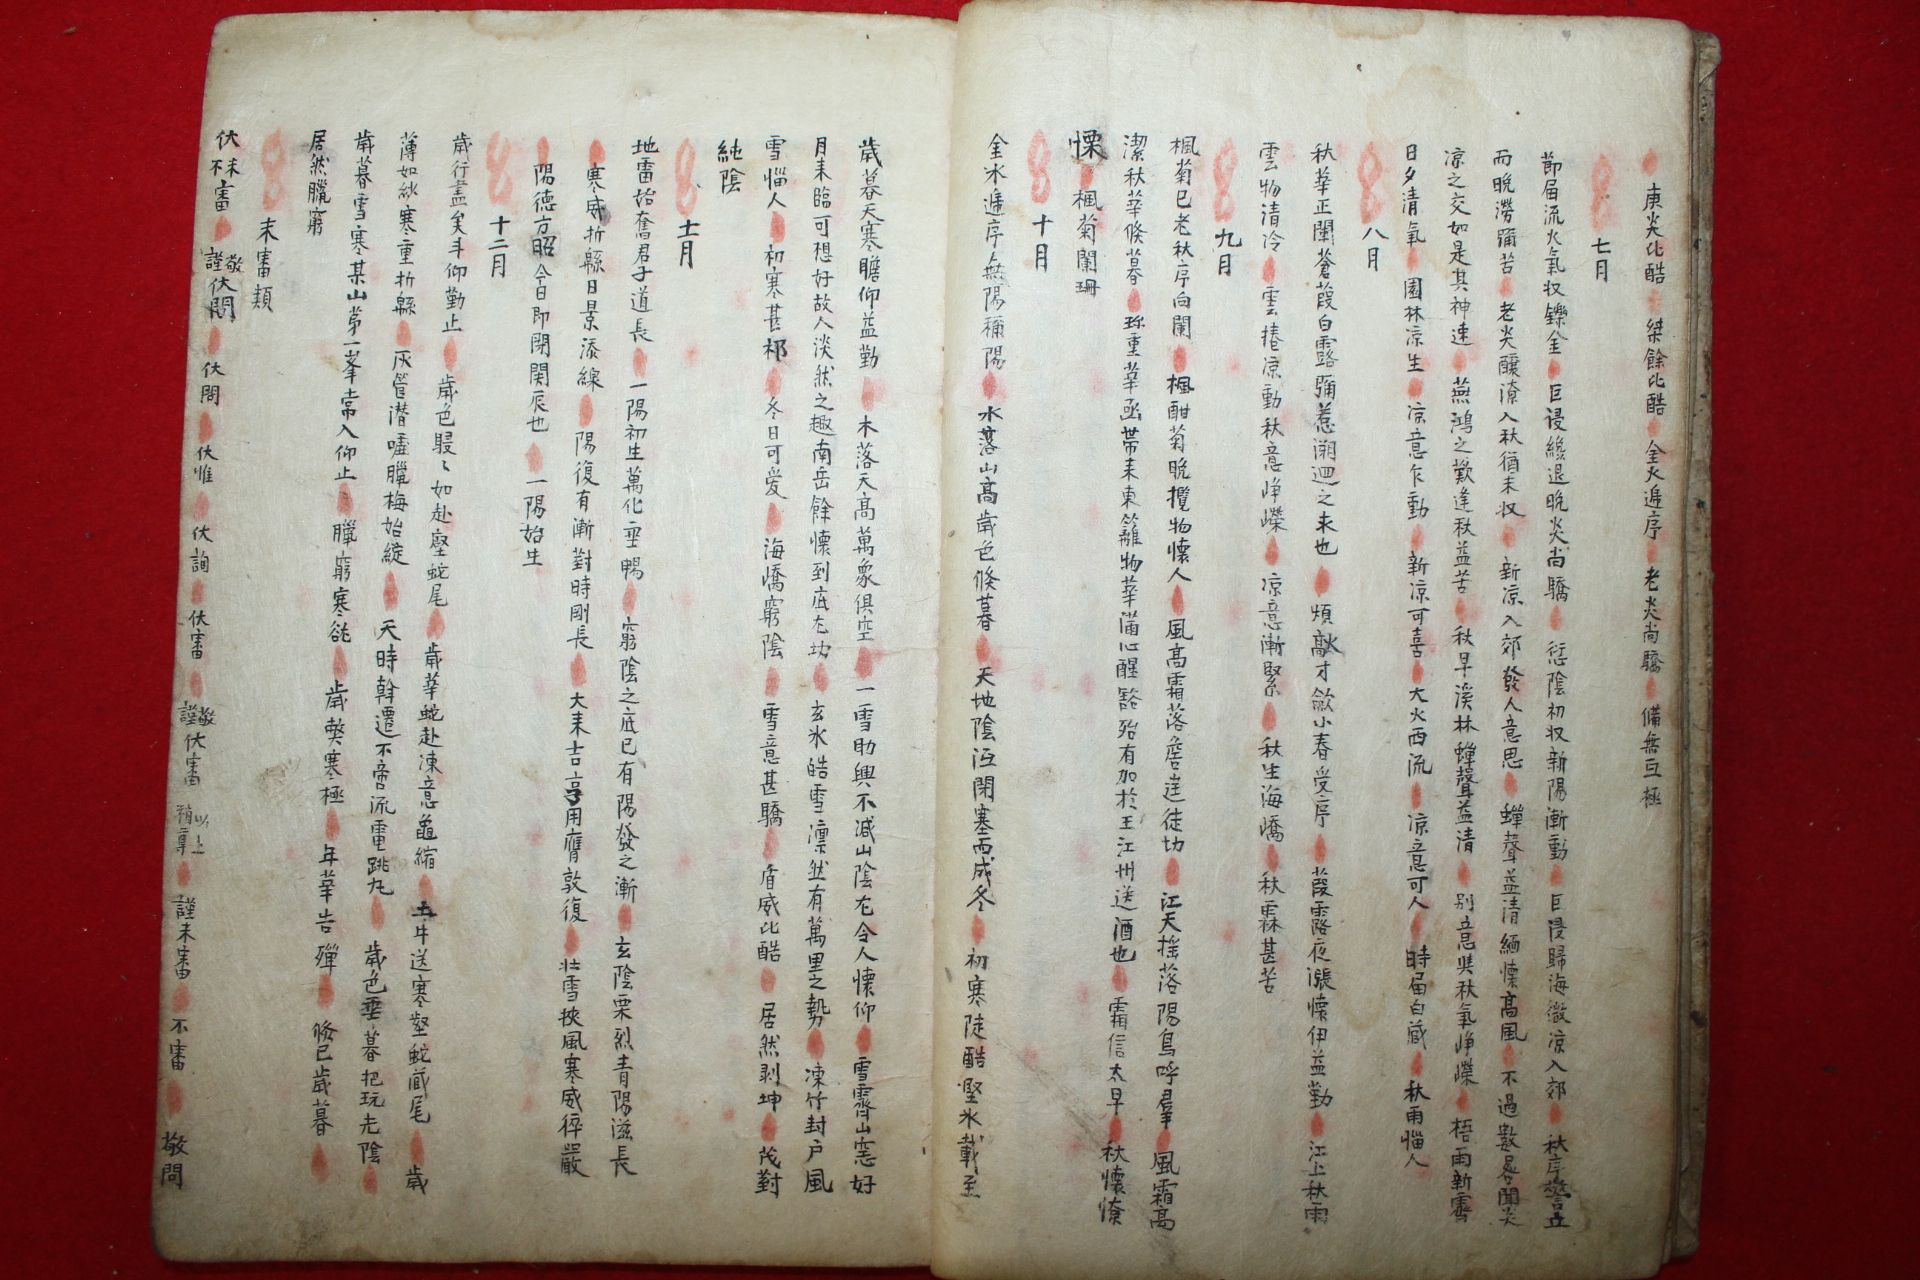 庚炎比酷 桀餘比酷 金火遞序 老炎尚驕 備無亘極
七月
節届流火氣収鑠金 巨浸纔退晩炎尚驕 愆陰初収新陽漸動 巨浸歸海微凉入郊 秋序
而晩澇踊苦 老炎釀潦入秋猶未収 新凉入郊發人意思 蟬聲益清緬懐高風 不過數
凉之交如是其神速 燕鴻之歎逢秋益苦 秋早溪林蟬聲益清 別意與秋氣崢嶸 梧雨新霽
日夕清氣 園林凉生 凉意乍動 新凉可喜 大火西流 凉意可人 時届白藏 秋雨惱人
八月
秋華正闌蒼葭白露彌惹溯迴之求也 煩歊才歛小春受序 葭露夜漲懐伊益勤 江上秋雨
雲物清冷 雲捲凉動秋意崢嶸 凉意漸緊 秋生海嶠 秋霖甚苦
九月
楓菊已老秋序向闌 楓酣菊晩攬物懐人 風高霜落詹徒切 江天揺落陽鳥呼羣 風霜高
潔秋華倐暮 珎重華函帶来東籬物華滿心醒豁殆有加於王江州送酒也 霜信太早 秋懐憭
慄 楓菊闌珊
十月
金水遞序無陽稱陽 水落山高歲色倐暮 天地陰沍閉塞而成冬 初寒陡酷堅氷載至
歲暮天寒瞻仰益勤 木落天高萬象俱空 一雪助興不减山陰尤令人懐仰 雪霽山窓好
月来臨可想好故人淡然之趣南岳餘懐到底尤切 玄氷皓雪凛然有萬里之勢 凍竹封户風
雪惱人 初寒甚祁 冬日可愛 海嶠窮陰 雪意甚驕 威比酷 居然剥坤 茂對
純陰
十一月
地雷始奮君子道長 一陽初生萬化亟暢 窮陰之底已有陽發之漸 玄陰栗烈青陽滋長
寒威折綿日景添線 陽復有漸對時剛長 大来吉亨用膺敦復 壯雪挾風寒威猝嚴
陽德方昭今日即閉関辰也 一陽始生
十二月
歲行盡矣斗仰勤止 歲色駸々如赴壑蛇尾 歲華蛇赴凍意龜縮 土牛送寒壑蛇藏尾 歲
薄如紗寒重折綿 灰管潜噓臘梅始綻 天時斡遷不啻流電跳丸 歲色垂暮把玩光陰
歲暮雪寒某山第一峯常入仰止 臘窮寒 歲弊寒極 年華告殫 倐已歲暮
居然臘窮
未審類
伏未審 謹敬伏問 伏問 伏惟 伏詢 伏審 謹敬伏審 以上稍尊 謹未審 不審 敬問